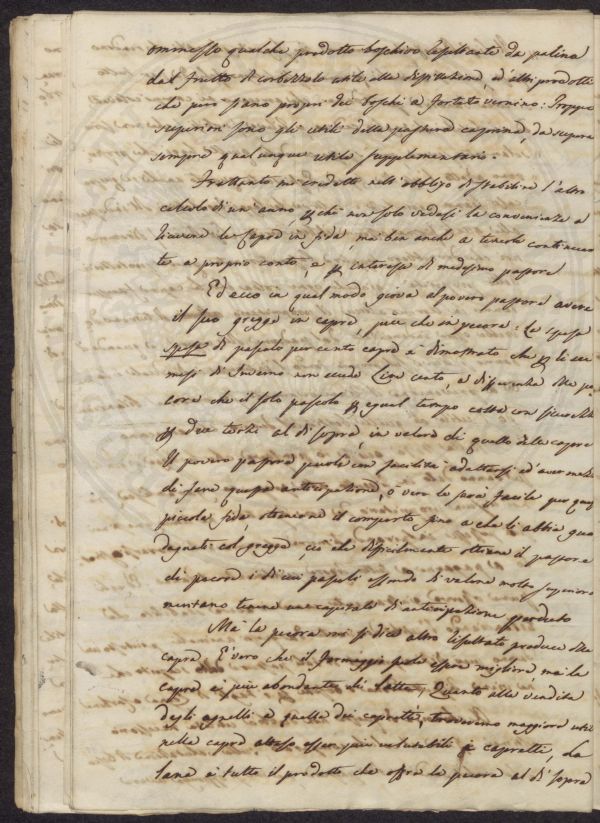 ommesso qualche prodotto boschivo resultante da palina
dal frutto di corbezzolo utile alla distillazione, ed altri prodotti
che pure siano propri dei boschi a fortuito vernino: Troppo
superiori sono gli utili della pastura caprina, da supera
sempre qualunque utile supplementario.
Frattanto mi credetti nell'obbligo di stabilire l'altro
calcolo di un'anno, chè non solo vedasi la convenienza a
ricevere le Capre in fida, ma ben anche a tenerle continuamen
te a proprio conto, e interesse di medesimo pastore
Ed ecco in qual modo giova al povero pastore avere
il suo gregge in capre, più che in pecore: La spesa
spesa di pascolo per cento capre è dimostrato che li sei
mesi di Inverno non eccede Lire cento, a differenza della pe
cora che il solo pascolo egual tempo costa con sicurezza
due terzi al di sopra, in valore di quello delle capre
Il povero pastore puole con facilità adattarsi ad aver modo
di fare questa anticipazione, o vero le sarà facile per quella
piccola fida, ottenerne il comporto fino a che li abbia gua
dagnati col gregge, ciò che difficilmente ottiene il pastore
di pecore i di cui pascoli essendo di valore molto superiore
meritano tenere un capitale di anticipazione perduto
Ma la pecora mi si dice altro resultato produce della
capra. È vero che il formaggio puole essere migliore, ma la
capra è più abondante di latte, Quanto alla vendita
degli agnelli e quella dei capretti, troveremo maggiore utile
nella capra atteso esser più valutabili i capretti, La
lana è tutto il prodotto che offre la pecora al di sopra